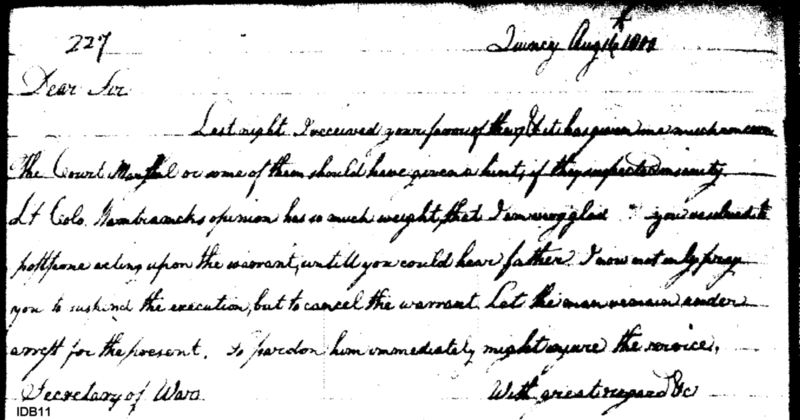 227
Quincy Aug 16th 1800
Dear Sir
Last night I received your favor of the & it has given me much concern
The Court Marshal or some of them should have given a hint, if they suspected insanity
Lt Colo. opinion has so much weight, that I am very glad you resolved to
postpone acting upon the warrant, untill you could hear father. I now not only pray
you to suspend the execution, but to cancel the warrant. Let the man remain under
arrest for the present. To pardon him immediately might injure the service.
Secretary of War.
With great regard &c
IDB11